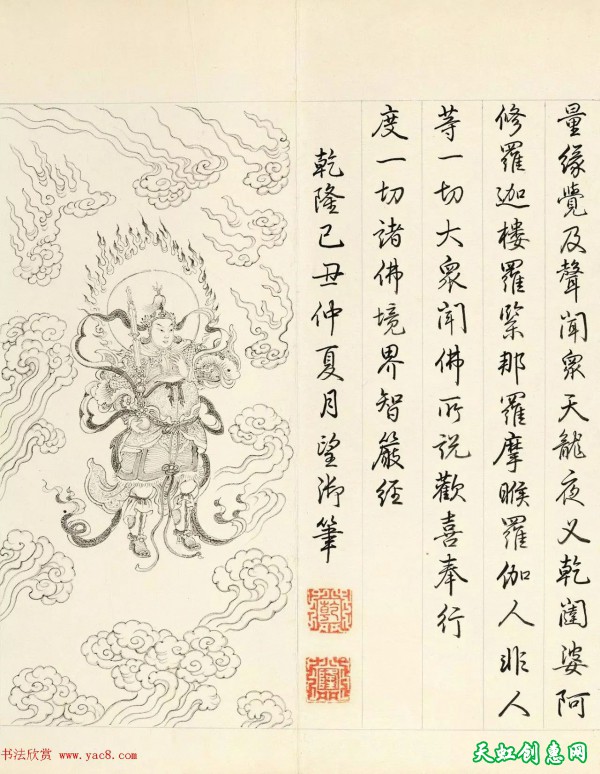 量緣覺及聲聞眾天龍夜叉乾闥婆阿
修羅迦樓羅緊那羅摩睺羅伽人非人
等一切大眾聞佛所說歡喜奉行
度一切諸佛境界智嚴經
乾隆己丑仲夏月望御筆
乾
隆
书法欣赏 www.yac8.com
天虹创惠网